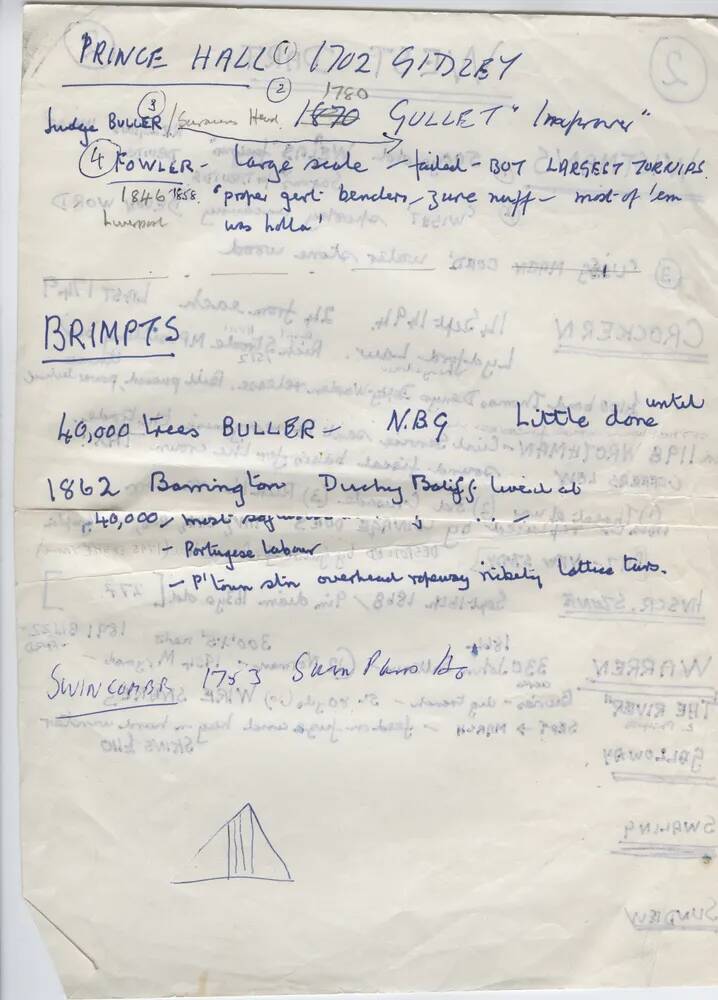 PRINCE HALL ① 1702 GIDLEY
③ ② 1780
Judge BULLER / Saracens Head. 1870 GULLET "Improver"
④ FOWLER - large scale - failed - BUT LARGEST TURNIPS.
1846 1858. "proper gert benders, zure nuff - most of 'em
Liverpool was holla"
BRIMPTS
40,000 trees BULLER - N.B.G Little done until
1862 Barrington Duchy Bailiff lived at
40,000 - most
- Portugese labour
- P'town stn overhead ropeway rickety lattice
SWINCOMBE 1783